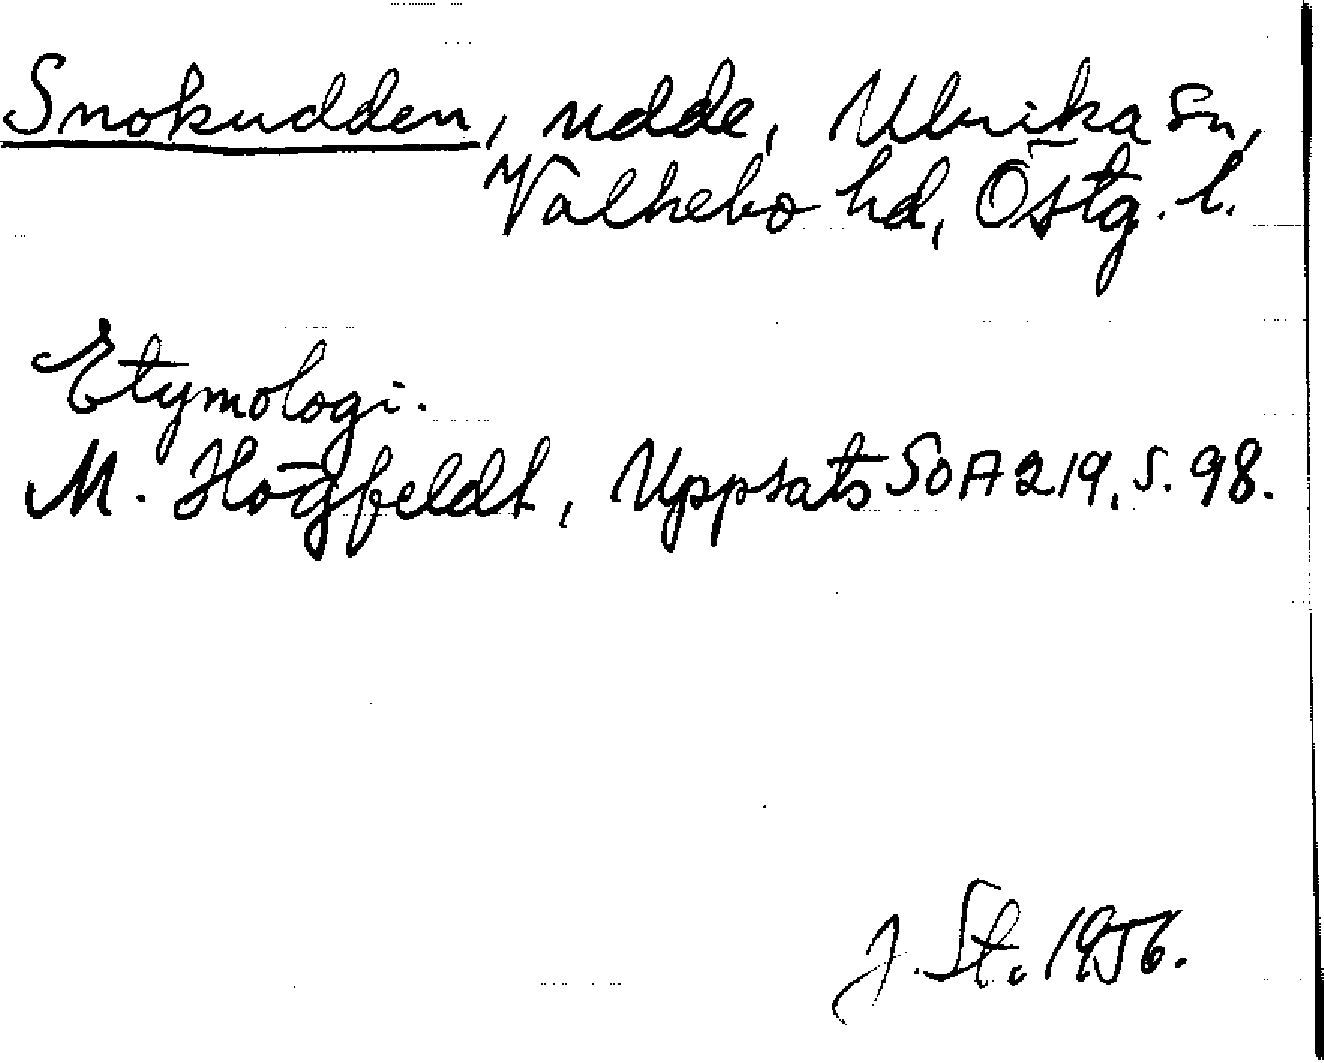 Snokudden, udde, Ulrika sn,
Valkebo hd, Östg. l.
Etymologi.
M. Högfeldt, Uppsats SOA 219, s. 98.
J. St. 1956.